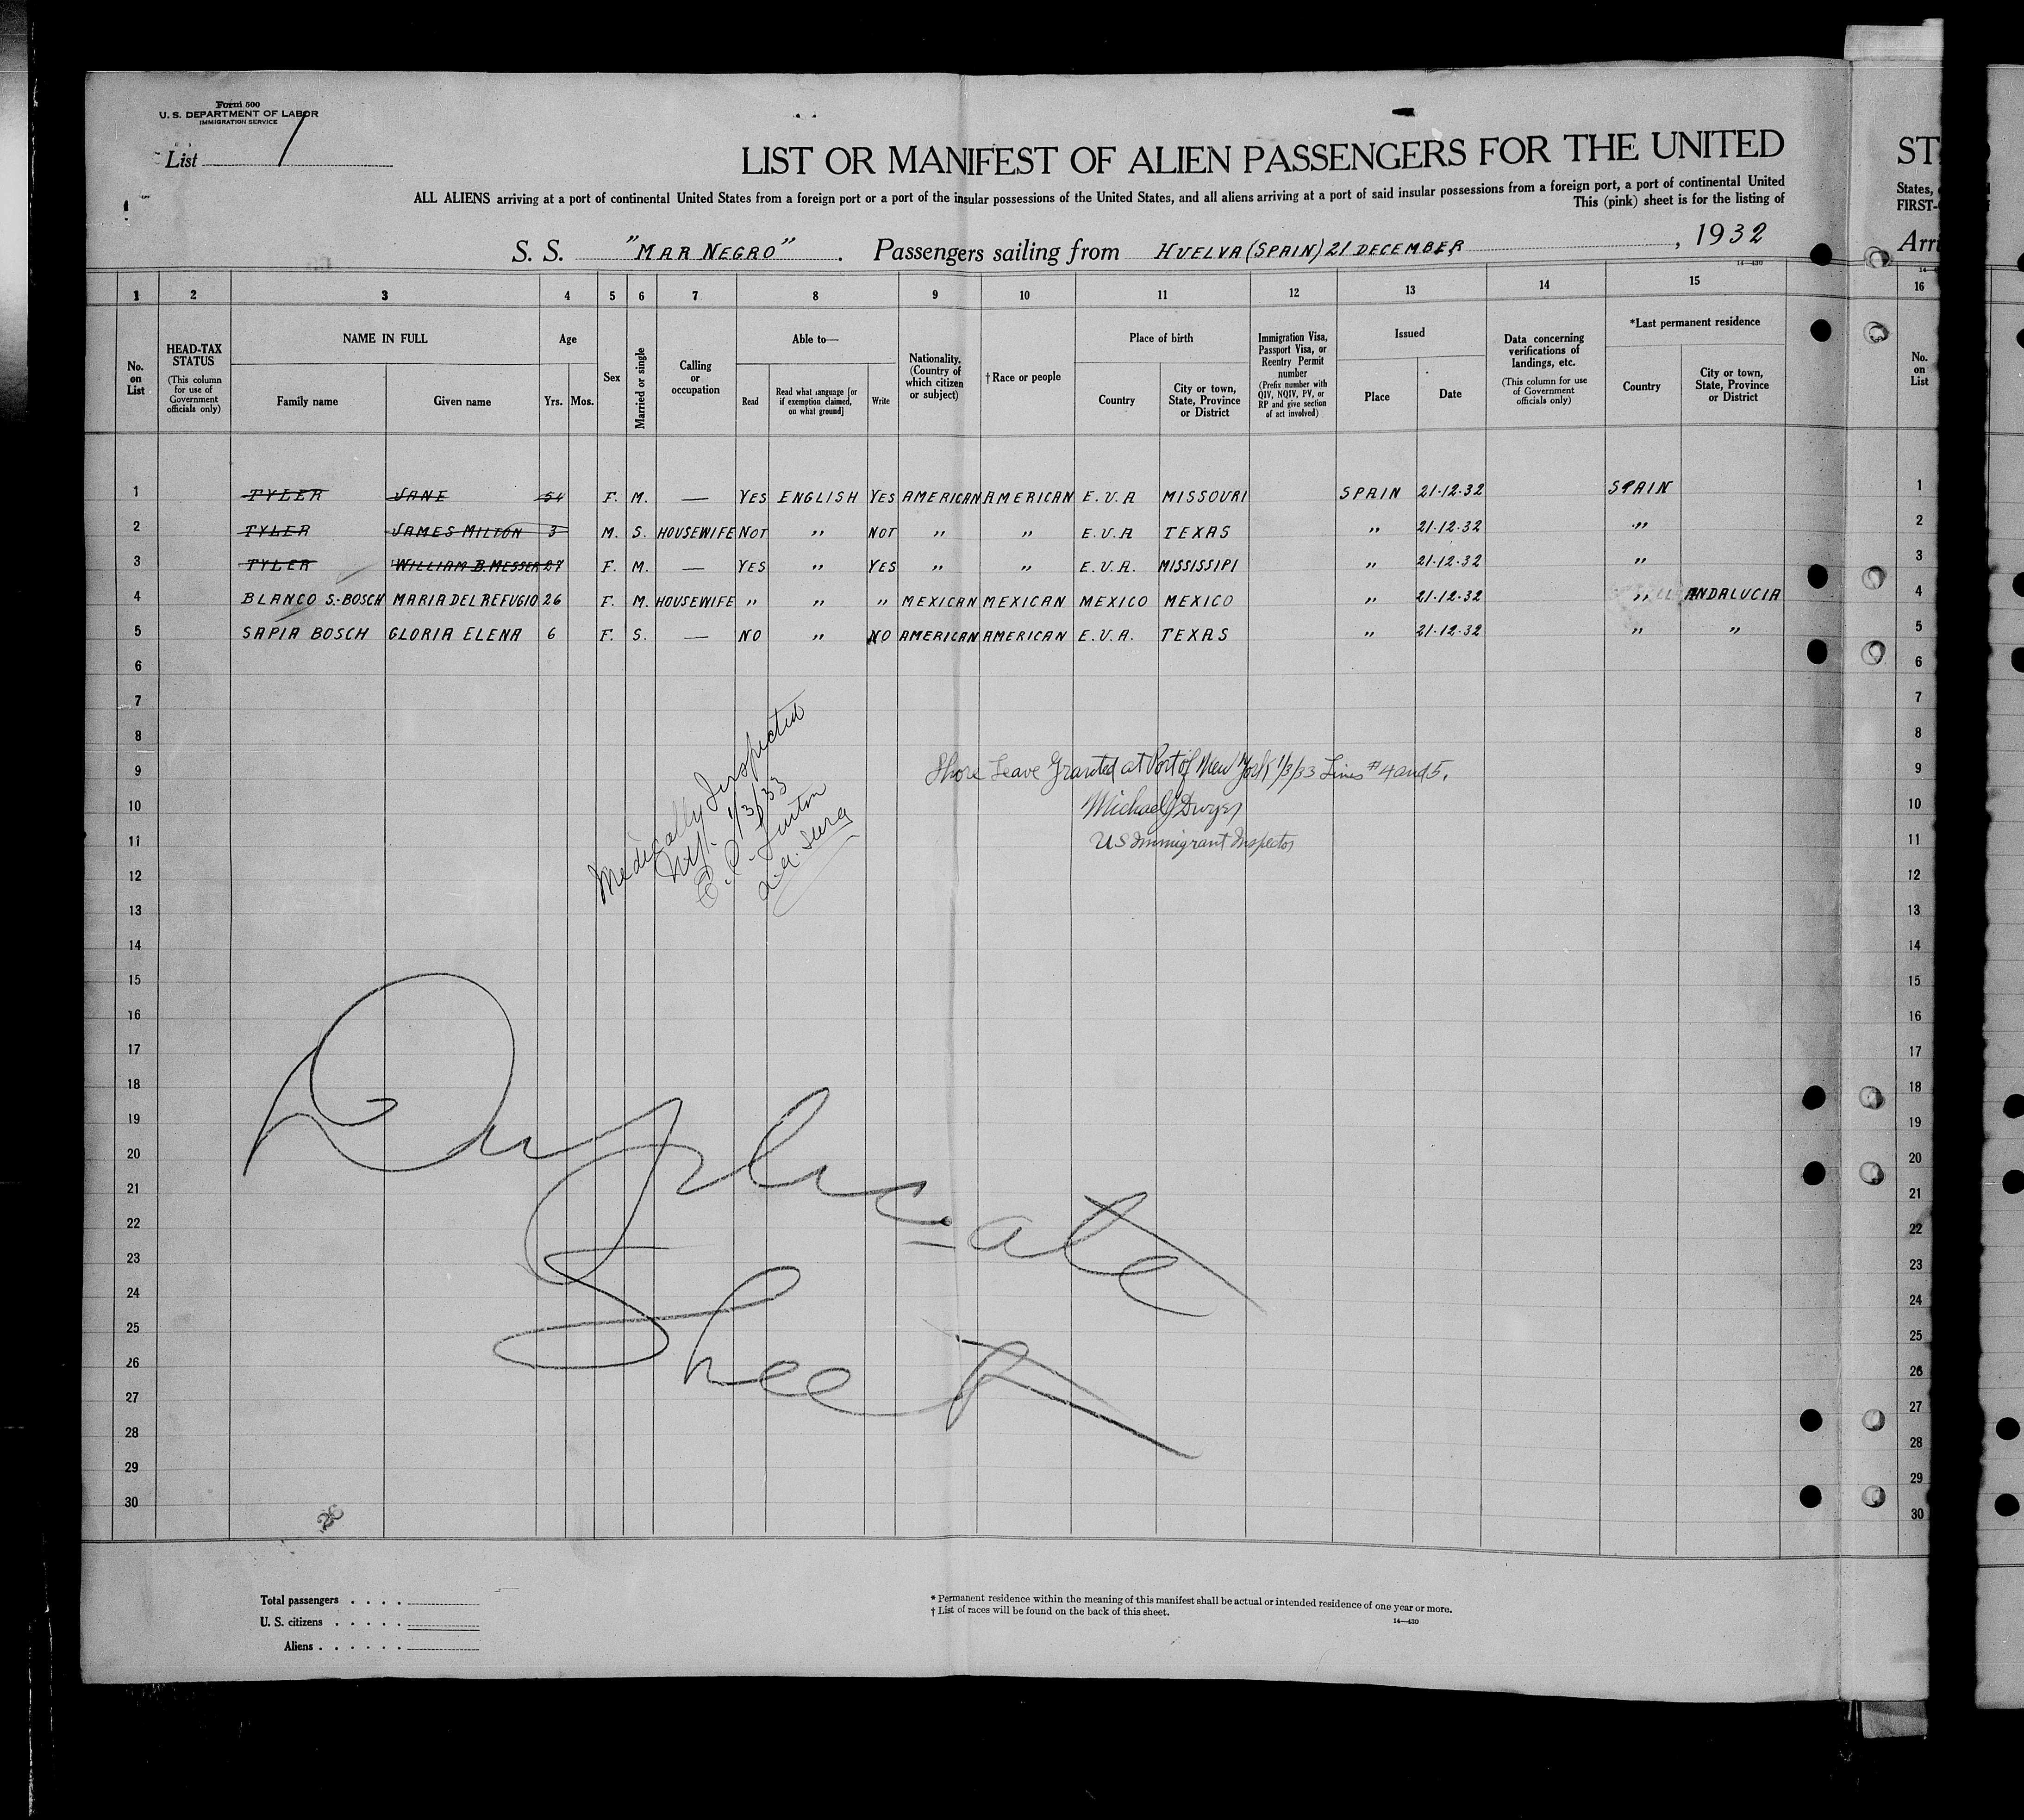 Form 500
U. S. DEPARTMENT OF LABOR
IMMIGRATION SERVICE
List 1
LIST OR MANIFEST OF ALIEN PASSENGERS FOR THE UNITED
ALL ALIENS arriving at a port of continental United States from a foreign port or a port of the insular possessions of the United States, and all aliens arriving at a port of said insular possessions from a foreign port, a port of continental United
This (pink) sheet is for the listing of
S. S. "MAR NEGRO". Passengers sailing from HUELVA (SPAIN) 21 DECEMBER, 1932
14—430
ST
States,
FIRST-
Arri
1 2 3 4 5 6 7 8 9 10 11 12 13 14 15 16
No. on List
HEAD-TAX STATUS
(This column for use of Government officials only)
NAME IN FULL
Family name
Given name
Age
Yrs. Mos.
Sex
Married or single
Calling or occupation
Able to—
Read
Read what language [or if exemption claimed, on what ground]
Write
Nationality. (Country of which citizen or subject)
†Race or people
Place of birth
Country
City or town, State, Province or District
Immigration Visa, Passport Visa, or Reentry Permit number
(Prefix number with QIV, NQIV, PV, or RP and give section of act involved)
Issued
Place
Date
Data concerning verifications of landings, etc.
(This column for use of Government officials only)
*Last permanent residence
Country
City or town, State, Province or District
No. on List
1 TYLER JANE 54 F. M. — YES ENGLISH YES AMERICAN AMERICAN E.U.A MISSOURI SPAIN 21-12-32 SPAIN 1
2 TYLER JAMES MILTON 3 M. S. HOUSEWIFE NOT " NOT " " E.U.A TEXAS " 21-12-32 " 2
3 TYLER WILLIAM B. MESSER 27 F. M. — YES " YES " " E.U.A. MISSISSIPI " 21-12-32 " 3
4 BLANCO S.-BOSCH MARIA DEL REFUGIO 26 F. M. HOUSEWIFE " " " MEXICAN MEXICAN MEXICO MEXICO " 21-12-32 " ANDALUCIA 4
5 SAPIA BOSCH GLORIA ELENA 6 F. S. — NO " NO AMERICAN AMERICAN E.U.A. TEXAS " 21-12-32 " " 5
6 6
7 7
8 8
9 9
10 10
11 11
12 12
13 13
14 14
15 15
16 16
17 17
18 18
19 19
20 20
21 21
22 22
23 23
24 24
25 25
26 26
27 27
28 28
29 29
30 30
Medically Inspected
N.Y. 1/3/33
a.a. Surg
Shore Leave Granted at Port of New York 1/3/33 Lines #4 and 5.
Michael J Dwyer
US Immigrant Inspector
Duplicate
Sheet
Total passengers . . . .
U. S. citizens . . . . .
Aliens . . . . . .
* Permanent residence within the meaning of this manifest shall be actual or intended residence of one year or more.
† List of races will be found on the back of this sheet.
14—430